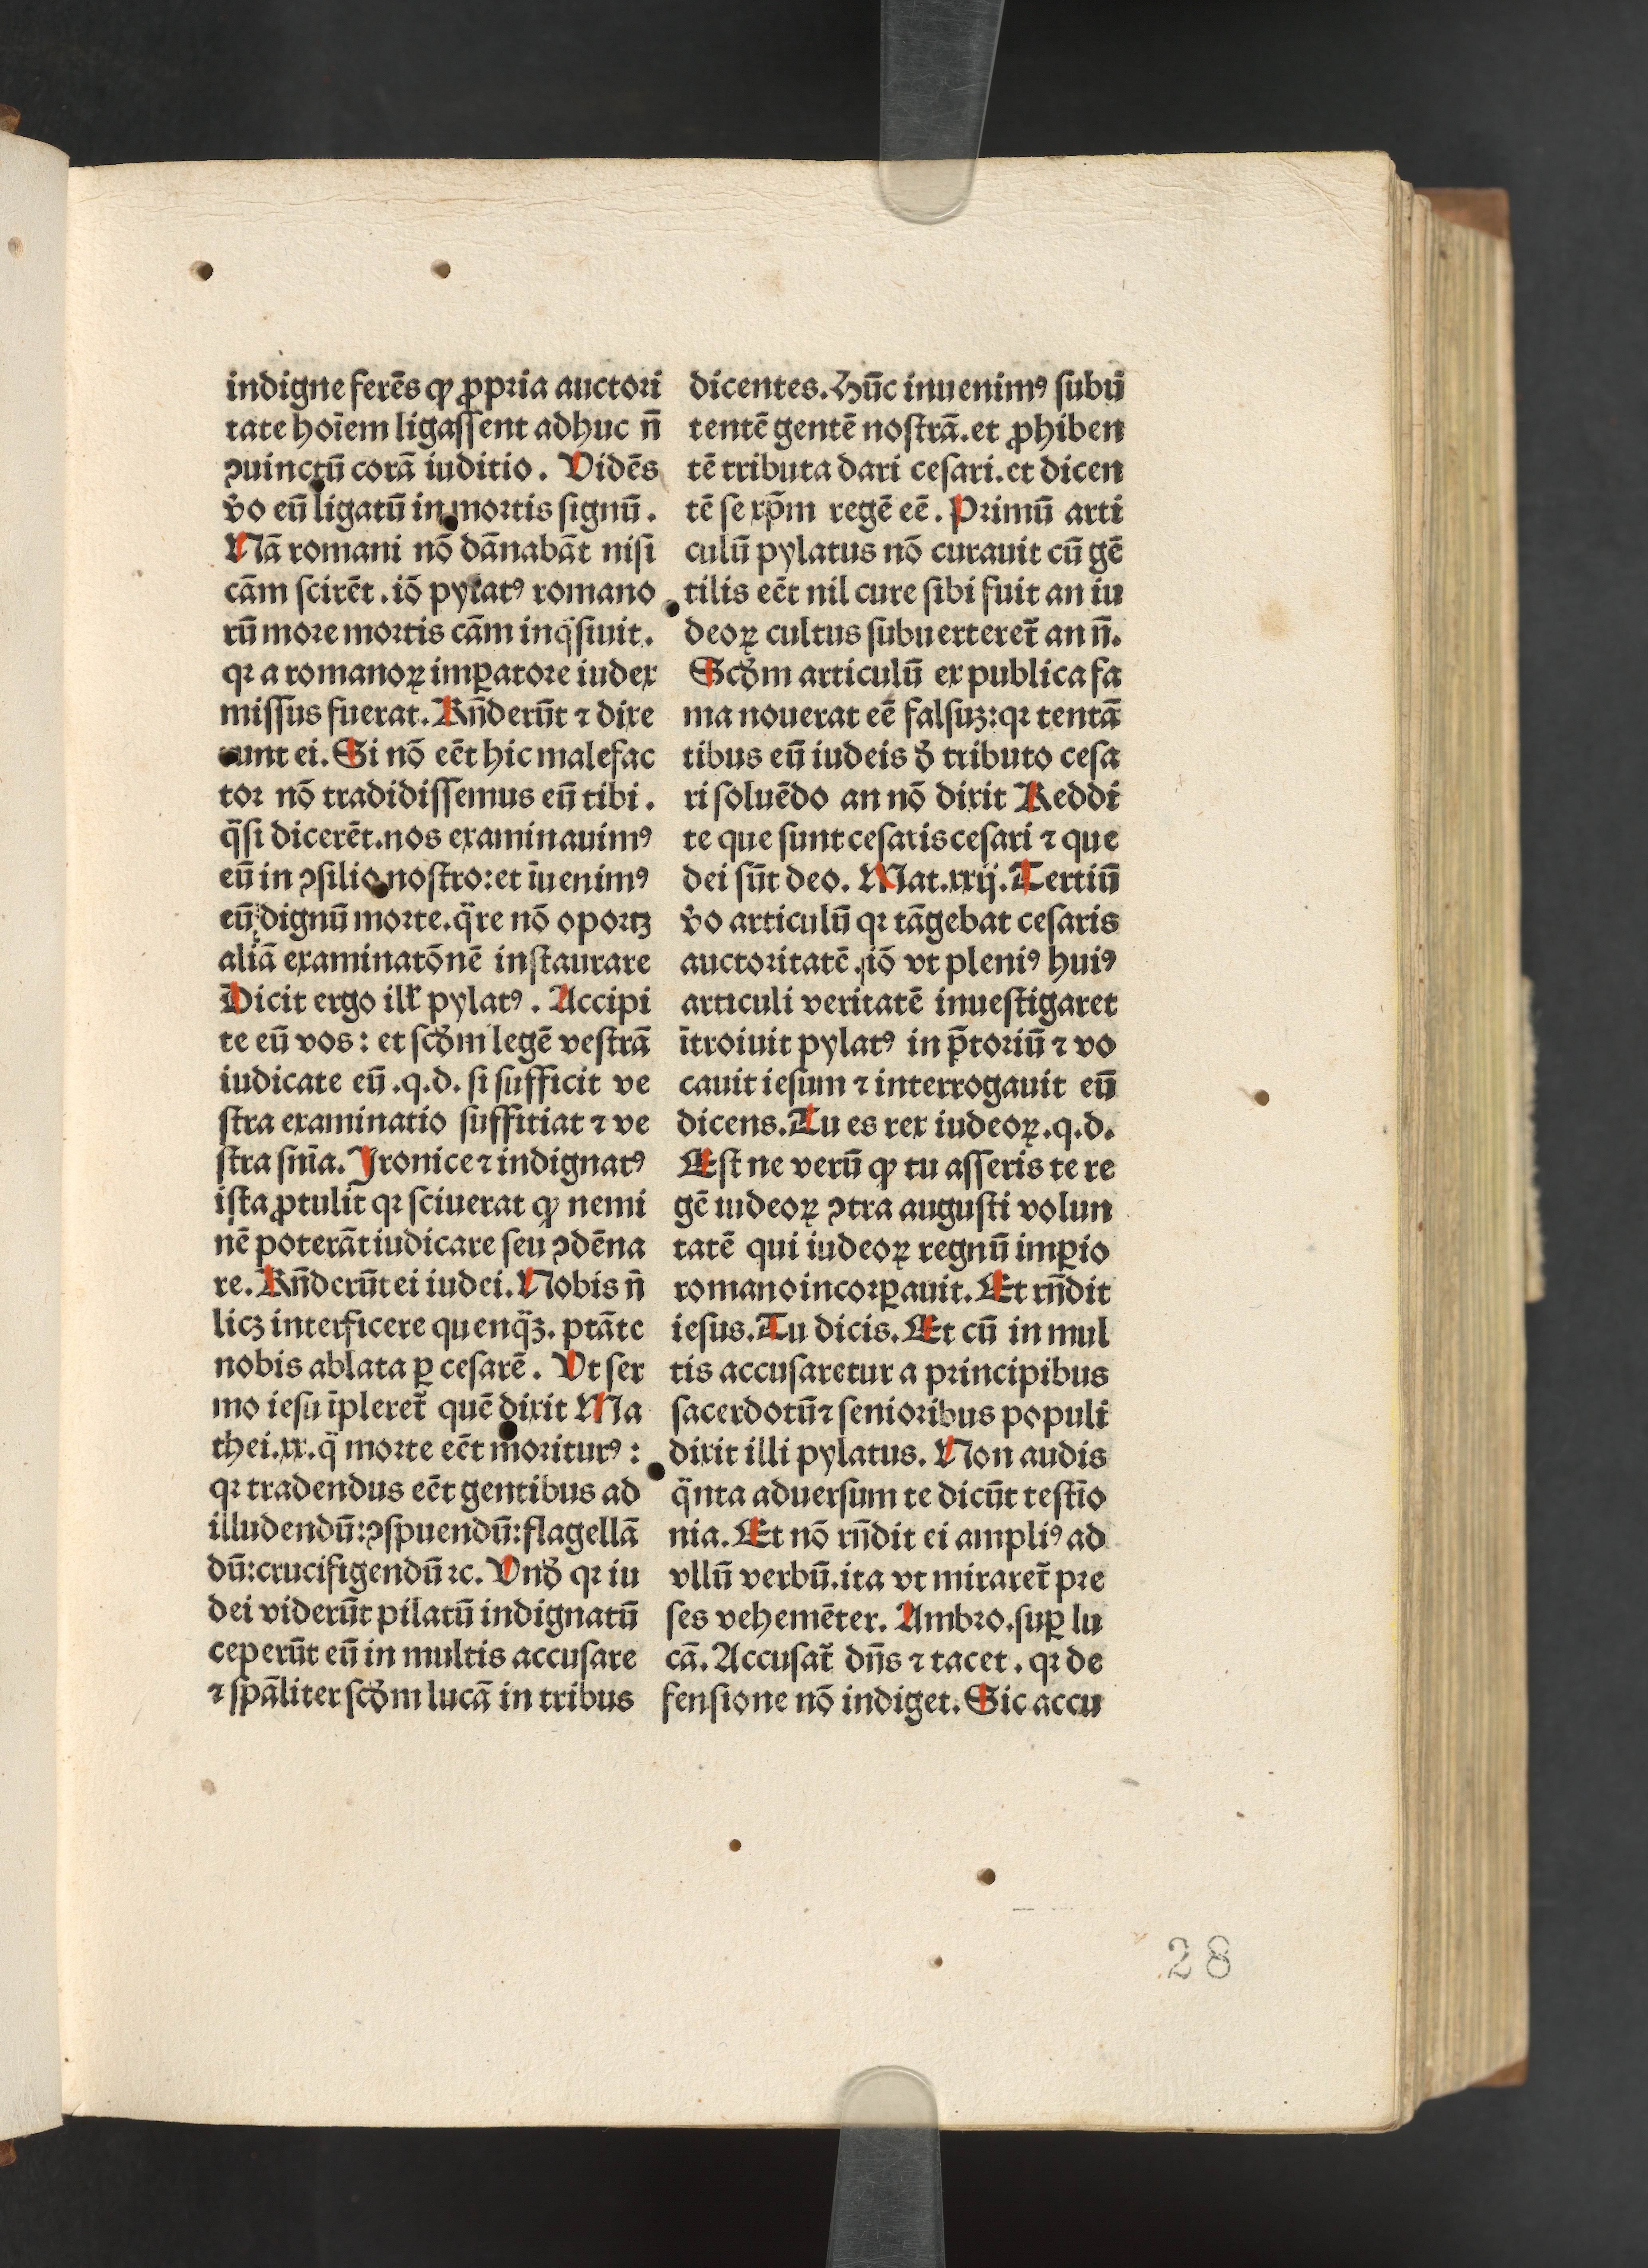 indigne ferēs ꝙ ꝓpria auctori
tate hoīem ligaſſent adhuc n̄
ꝯuinctū corā iuditio. Vidēs
v̄o eū ligatū in mortis ſignū.
Nā romani nō dānabāt niſi
cām ſcirēt. iō pylatꝰ romano
rū more mortis cām inqͥſiuit.
qꝛ a romanoꝝ imꝑatore iudex
miſſus fuerat. Rn̄derūt ⁊ dixe
runt ei. Si nō eēt hic malefac
tor nō tradidiſſemus eū tibi.
qͣſi dicerēt. nos examinauimꝰ
eū in ꝯſilio noſtro: et īuenimꝰ
eū dignū morte. qͣre nō oportꝫ
aliā examinatōnē inſtaurare
Dicit ergo ill̓ pylatꝰ. Accipi
te eū vos: et ſcd̓m legē veſtrā
iudicate eū .q.d. ſi ſufficit ve
ſtra examinatio ſuffitiat ⁊ ve
ſtra ſnīa. Jronice ⁊ indignatꝰ
iſta ꝓtulit qꝛ ſciuerat ꝙ nemi
nē poterāt iudicare ſeu ꝯdēna
re. Rn̄derūt ei iudei. Nobis n̄
licꝫ interficere quenqͣꝫ. ptāte
nobis ablata ꝑ ceſarē. Vt ſer
mo ieſu īpleret̄ quē dixit Ma
thei.xx. qͣ morte eēt moriturꝰ:
qꝛ tradendus eēt gentibus ad
illudendū: ꝯſpuendū: flagellā
dū: crucifigendū ⁊c. Vnd̓ qꝛ iu
dei viderūt pilatū indignatū
ceperūt eū in multis accuſare
⁊ ſpāliter ſcd̓m lucā in tribus
dicentes. Hūc inuenimꝰ ſubū
tentē gentē noſtrā. et ꝓhiben
tē tributa dari ceſari. et dicen
tē ſe xp̄m regē eē. Primū arti
culū pylatus nō curauit cū gē
tilis eēt nil cure ſibi fuit an iu
deoꝝ cultus ſubuerteret̄ an n̄.
Scd̓m articulū ex publica fa
ma nouerat eē falſuꝫ: qꝛ tentā
tibus eū iudeis d̓ tributo ceſa
ri ſoluēdo an nō dixit Reddi
te que ſunt ceſaris ceſari ⁊ que
dei ſūt deo. Mat.xxij. Tertiū
v̄o articulū qꝛ tāgebat ceſaris
auctoritatē. iō vt pleniꝰ huiꝰ
articuli veritatē inueſtigaret
ītroiuit pylatꝰ in p̄toriū ⁊ vo
cauit ieſum ⁊ interrogauit eū
dicens. Tu es rex iudeoꝝ. q.d.
Eſt ne verū ꝙ tu aſſeris te re
gē iudeoꝝ ꝯtra auguſti volun
tatē qui iudeoꝝ regnū imꝑio
romano incorꝑauit. Et rn̄dit
ieſus. Tu dicis. Et cū in mul
tis accuſaretur a principibus
ſacerdotū ⁊ ſenioribus populi
dixit illi pylatus. Non audis
qͣnta aduerſum te dicūt teſtīo
nia. Et nō rn̄dit ei ampliꝰ ad
vllū verbū. ita vt miraret̄ pre
ſes vehemēter. Ambro. ſuꝑ lu
cā. Accuſat̄ dn̄s ⁊ tacet. qꝛ de
fenſione nō indiget. Sic accu
28